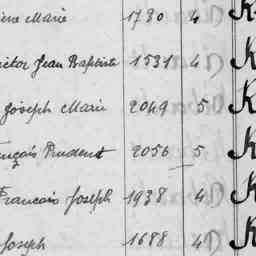 Marie 1730 4 D K
Victor Jean Baptiste 1531 4 D K
Joseph Marie 2049 5 K
François Prudent 2056 5 K
François Joseph 1938 4 D K
Joseph 1688 4 D K